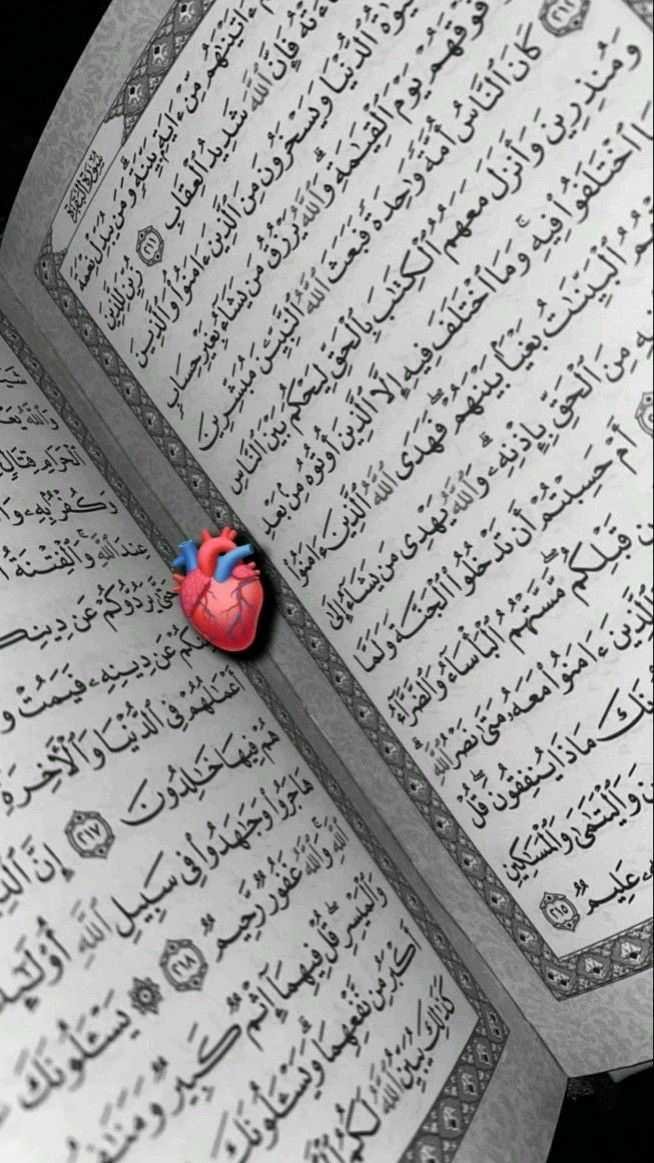 سُورَةُ البَقَرَةِ
ءَاتَيْنَٰهُم مِّنْ ءَايَةٍۭ بَيِّنَةٍ وَمَن يُبَدِّلْ نِعْمَةَ
فَإِنَّ ٱللَّهَ شَدِيدُ ٱلْعِقَابِ ٢١١ زُيِّنَ لِلَّذِينَ
ٱلدُّنْيَا وَيَسْخَرُونَ مِنَ ٱلَّذِينَ ءَامَنُوا۟ وَٱلَّذِينَ
فَوْقَهُمْ يَوْمَ ٱلْقِيَٰمَةِ وَٱللَّهُ يَرْزُقُ مَن يَشَآءُ بِغَيْرِ حِسَابٍ
٢١٢ كَانَ ٱلنَّاسُ أُمَّةً وَٰحِدَةً فَبَعَثَ ٱللَّهُ ٱلنَّبِيِّـۧنَ مُبَشِّرِينَ
وَمُنذِرِينَ وَأَنزَلَ مَعَهُمُ ٱلْكِتَٰبَ بِٱلْحَقِّ لِيَحْكُمَ بَيْنَ ٱلنَّاسِ
ٱخْتَلَفُوا۟ فِيهِ وَمَا ٱخْتَلَفَ فِيهِ إِلَّا ٱلَّذِينَ أُوتُوهُ مِنۢ بَعْدِ
ٱلْبَيِّنَٰتُ بَغْيًۢا بَيْنَهُمْ فَهَدَى ٱللَّهُ ٱلَّذِينَ ءَامَنُوا۟
مِنَ ٱلْحَقِّ بِإِذْنِهِۦ وَٱللَّهُ يَهْدِى مَن يَشَآءُ إِلَىٰ
أَمْ حَسِبْتُمْ أَن تَدْخُلُوا۟ ٱلْجَنَّةَ وَلَمَّا
قَبْلِكُم مَّسَّتْهُمُ ٱلْبَأْسَآءُ وَٱلضَّرَّآءُ
ءَامَنُوا۟ مَعَهُۥ مَتَىٰ نَصْرُ ٱللَّهِ
مَاذَا يُنفِقُونَ قُلْ
وَٱلْيَتَٰمَىٰ وَٱلْمَسَٰكِينِ
عَلِيمٌ ٢١٥
وَٱللَّهُ
ٱلْحَرَامِ قِتَالٍ
وَكُفْرٌۢ بِهِۦ
عِندَ ٱللَّهِ وَٱلْفِتْنَةُ
يَرُدُّوكُمْ عَن دِينِكُمْ
عَن دِينِهِۦ فَيَمُتْ
أَعْمَٰلُهُمْ فِى ٱلدُّنْيَا وَٱلْءَاخِرَةِ
هُمْ فِيهَا خَٰلِدُونَ ٢١٧ إِنَّ
هَاجَرُوا۟ وَجَٰهَدُوا۟ فِى سَبِيلِ ٱللَّهِ
ٱللَّهِ وَٱللَّهُ غَفُورٌ رَّحِيمٌ ٢١٨ يَسْـَٔلُونَكَ
وَٱلْمَيْسِرِ قُلْ فِيهِمَآ إِثْمٌ كَبِيرٌ
أَكْبَرُ مِن نَّفْعِهِمَا وَيَسْـَٔلُونَكَ
كَذَٰلِكَ يُبَيِّنُ ٱللَّهُ لَكُمُ